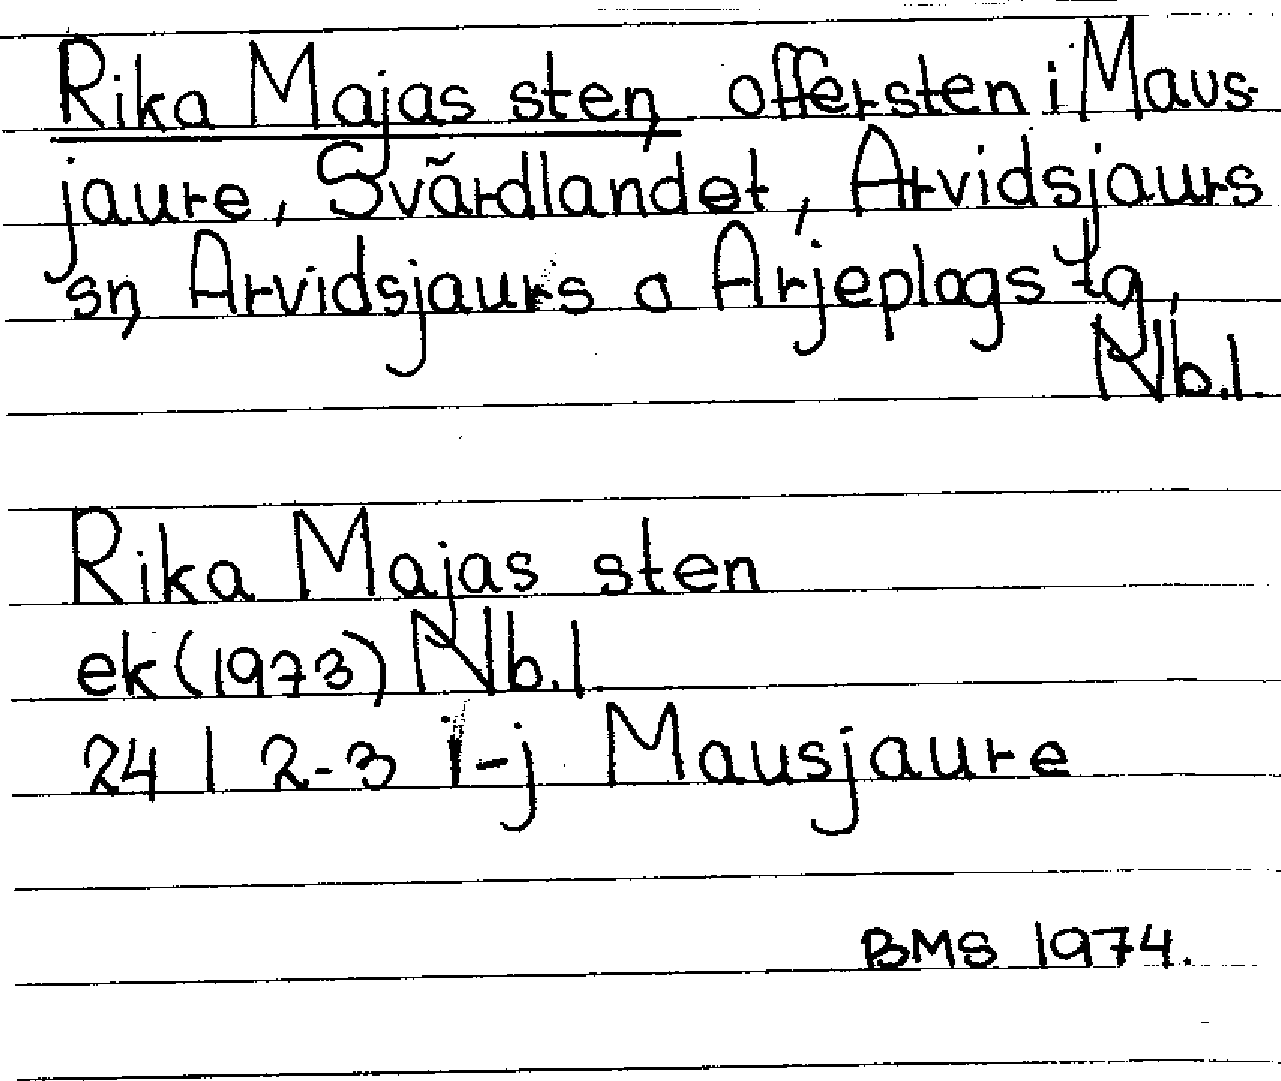 Rika Majas sten, offersten i Maus-
jaure, Svärdlandet, Arvidsjaurs
sn, Arvidsjaurs o Arjeplogs tg,
Nb.l.
Rika Majas sten
ek (1973) Nb.l.
24 I 2-3 i-j Mausjaure
BMS 1974.